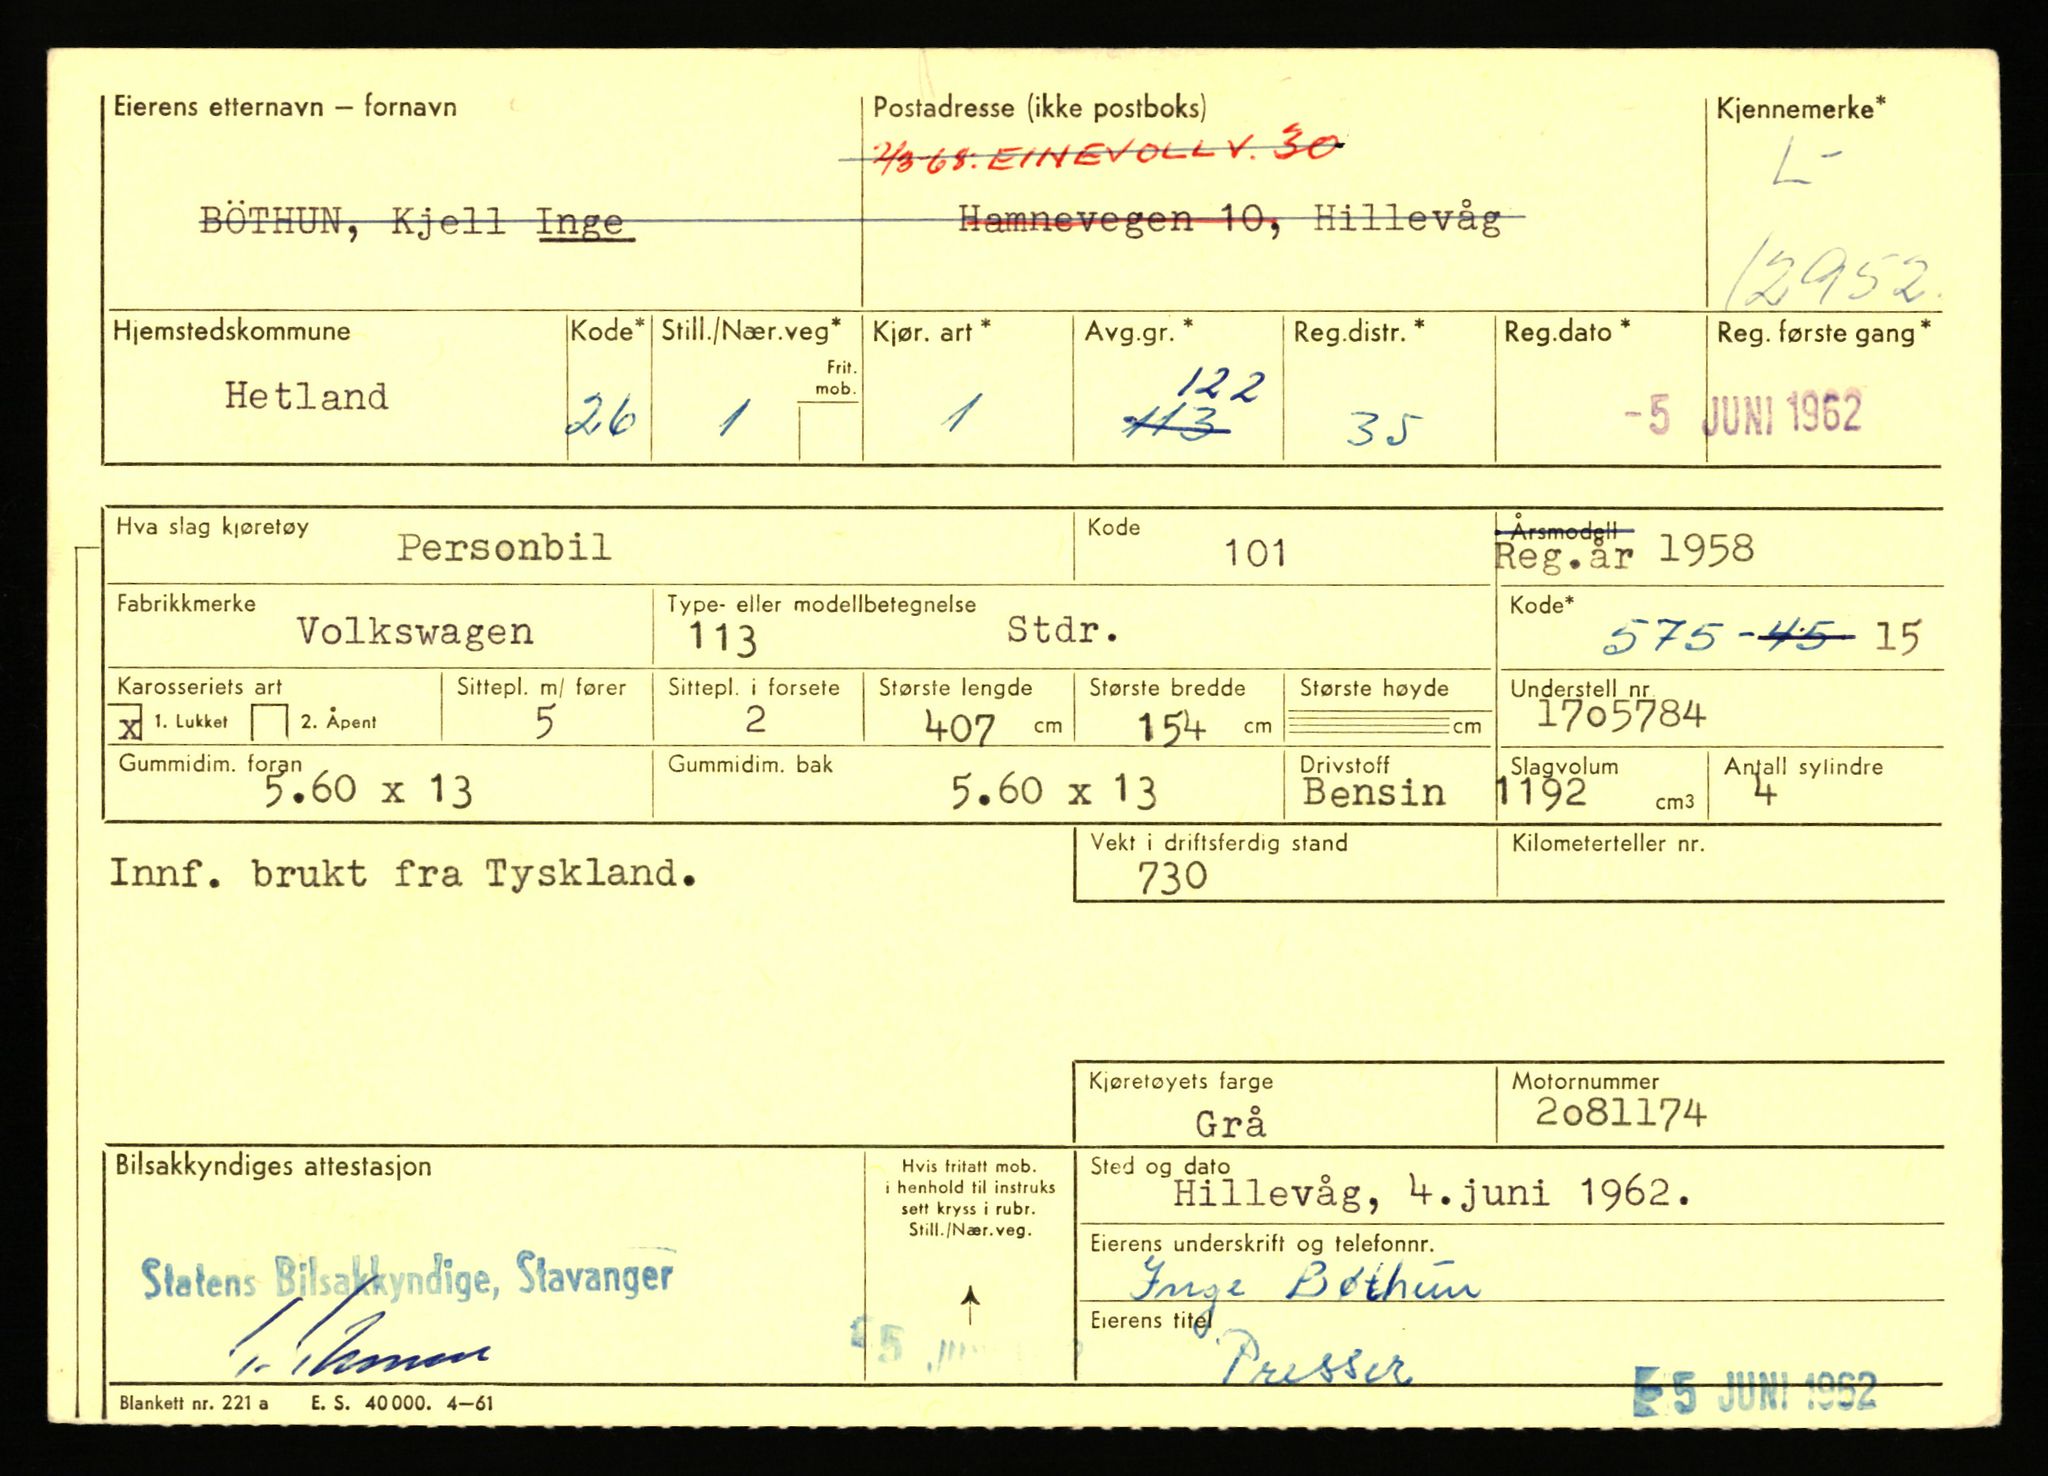 Eierens etternavn – fornavn
BÖTHUN, Kjell Inge
Postadresse (ikke postboks)
2/3-68: EINEVOLLV. 30
Hamnevegen 10, Hillevåg
Kjennemerke*
L-
12952.
Hjemstedskommune
Hetland
Kode*
26
Still./Nær.veg*
1
Frit.
mob.
Kjør. art *
1
Avg.gr. *
122
113
Reg.distr. *
35
Reg.dato *
Reg. første gang *
-5 JUNI 1962
Hva slag kjøretøy
Personbil
Kode
101
Årsmodell
Reg.år 1958
Fabrikkmerke
Volkswagen
Type- eller modellbetegnelse
113 Stdr.
Kode*
575-45 15
Karosseriets art
x 1. Lukket 2. Åpent
Sittepl. m/ fører
5
Sittepl. i forsete
2
Største lengde
407 cm
Største bredde
154 cm
Største høyde
cm
Understell nr.
1705784
Gummidim. foran
5.60 x 13
Gummidim. bak
5.60 x 13
Drivstoff
Bensin
Slagvolum
1192 cm3
Antall sylindre
4
Innf. brukt fra Tyskland.
Vekt i driftsferdig stand
730
Kilometerteller nr.
Kjøretøyets farge
Grå
Motornummer
2081174
Bilsakkyndiges attestasjon
Statens Bilsakkyndige, Stavanger
Hvis fritatt mob.
i henhold til instruks
sett kryss i rubr.
Still./Nær.veg.
Sted og dato
Hillevåg, 4.juni 1962.
Eierens underskrift og telefonnr.
Inge Bøthun
Eierens titel
Presser
-5 JUNI 1962
Blankett nr. 221 a E. S. 40 000. 4–61